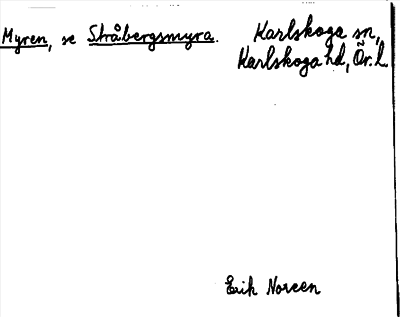 Myren, se Stråbergsmyra. Karlskoga sn,
Karlskoga hd, Ör. l.
Erik Noreen